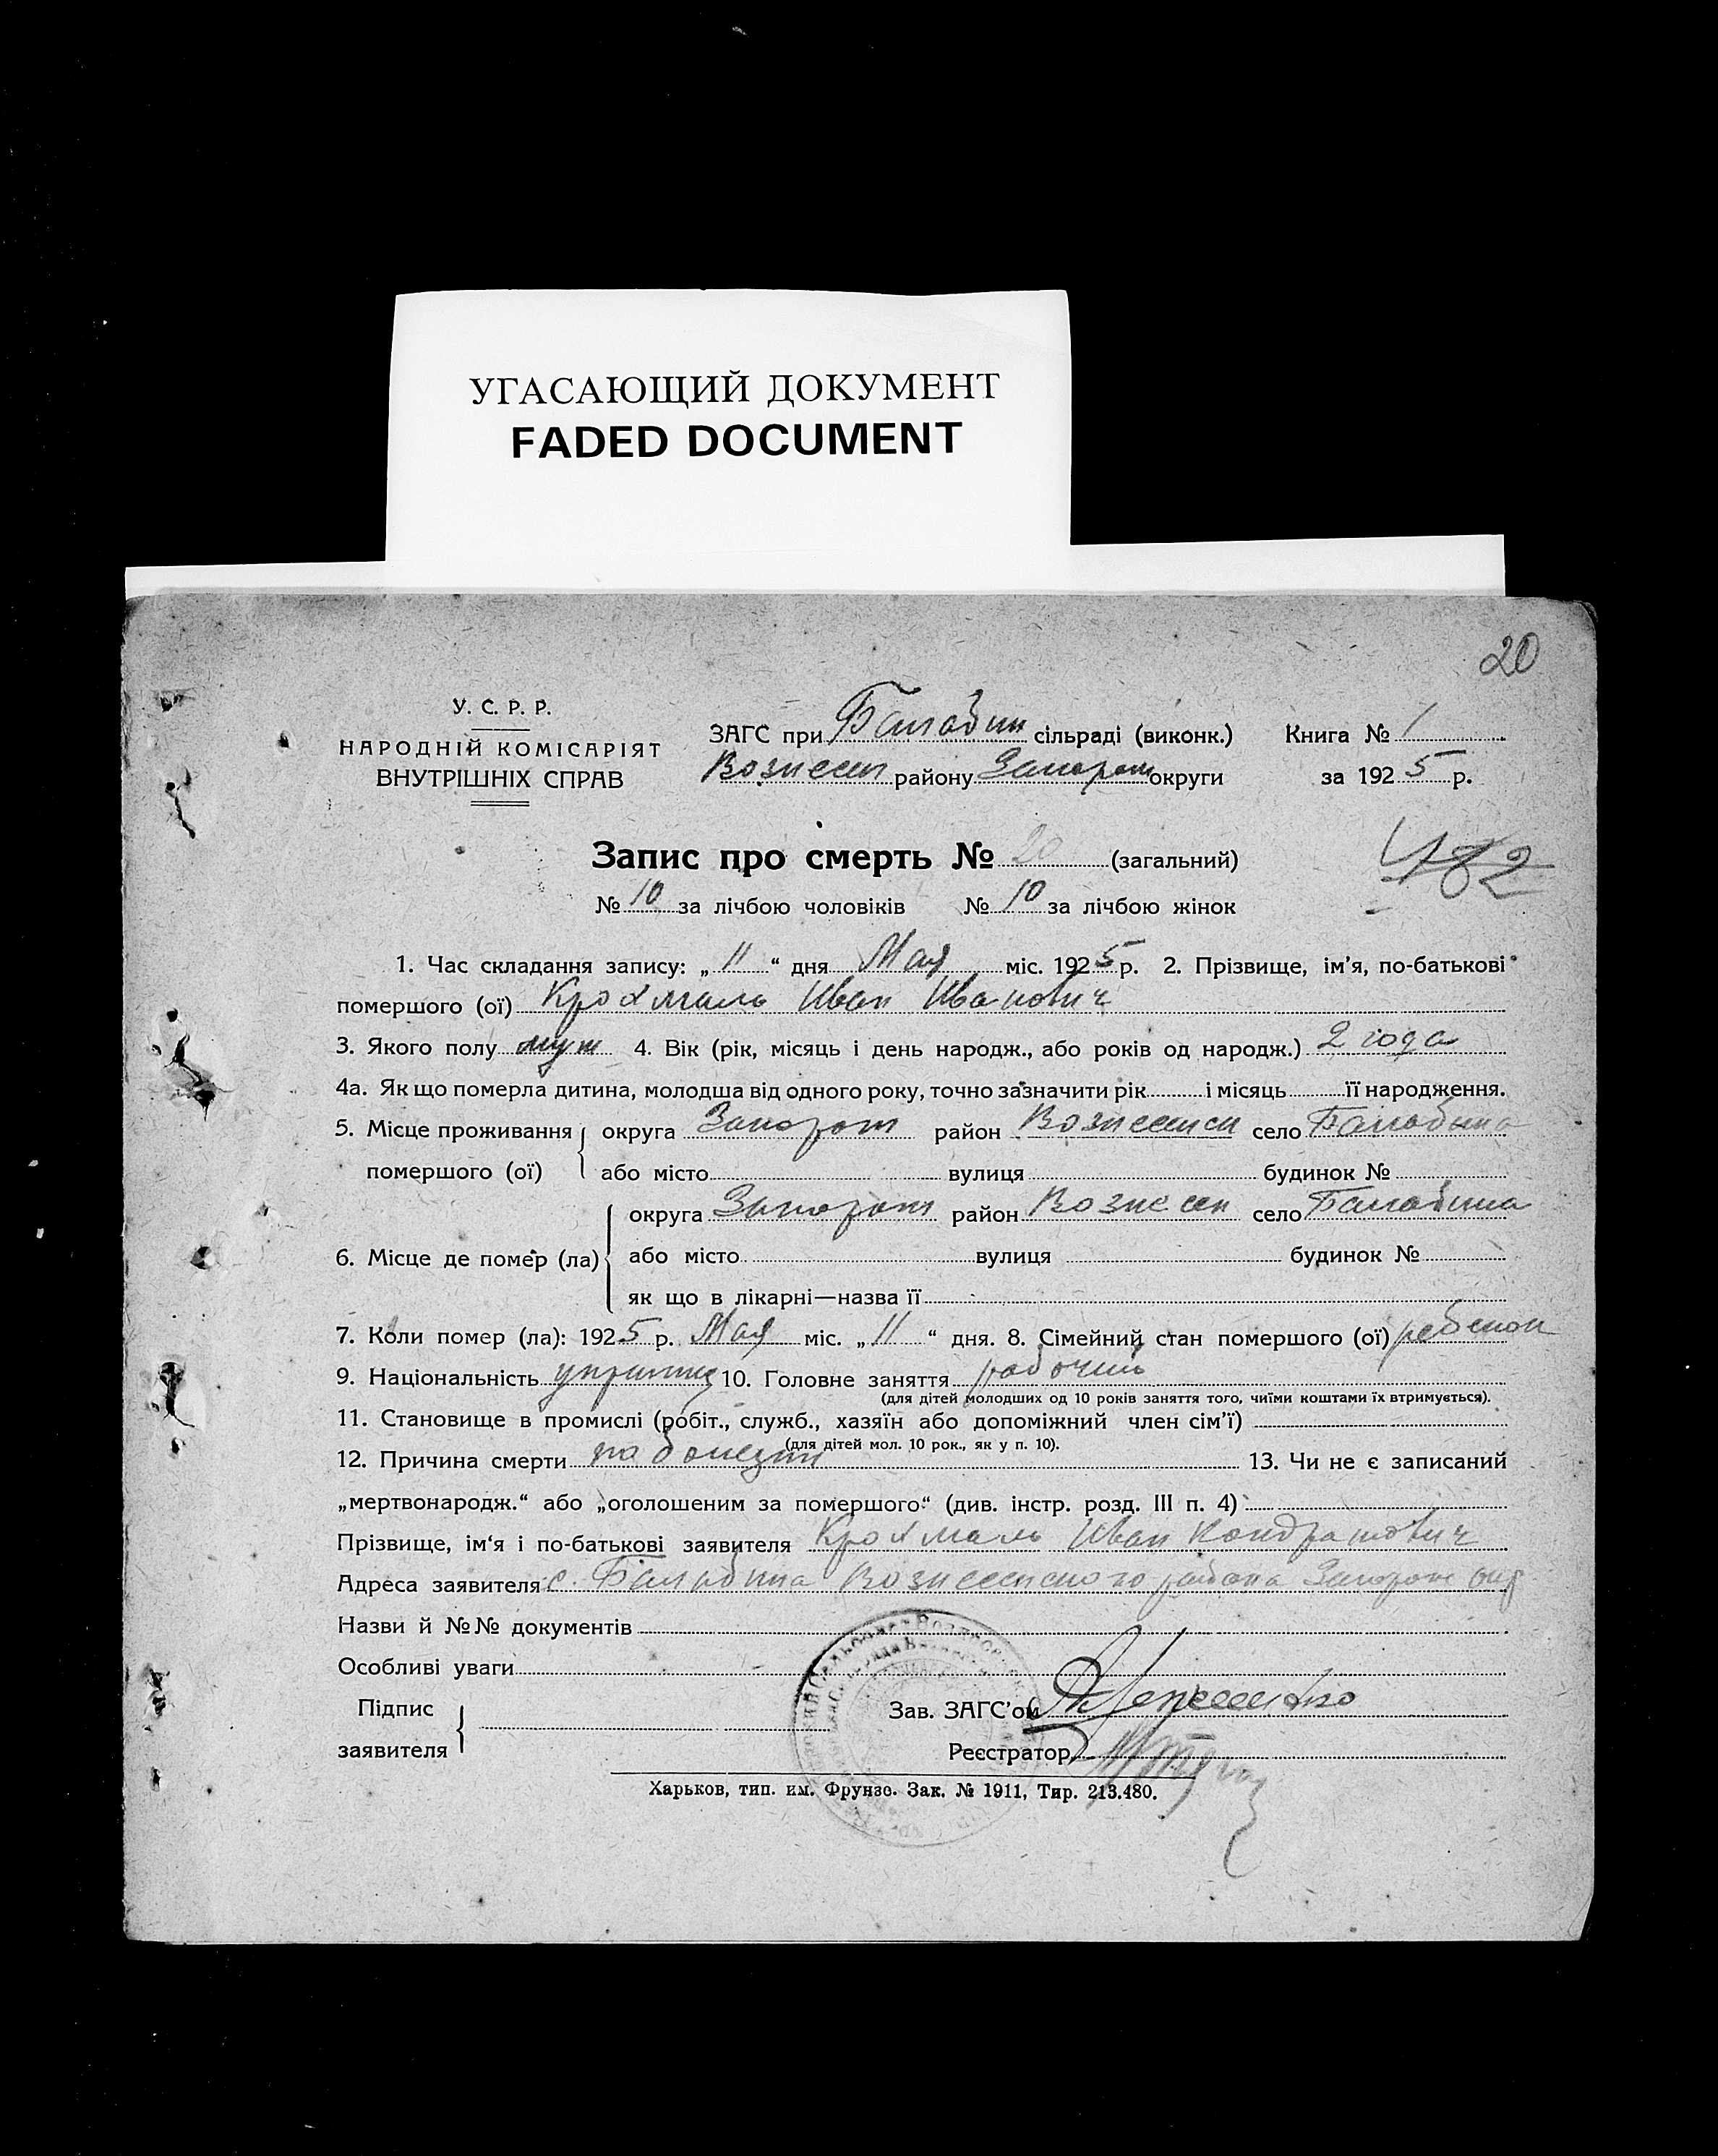 УГАСАЮЩИЙ ДОКУМЕНТ
FADED DOCUMENT
20
У. С. Р. Р.
НАРОДНІЙ КОМІСАРІЯТ
ВНУТРІШНІХ СПРАВ
ЗАГС при Балабин сільраді (виконк.) Книга № 1
Вознесен району Запорож округи за 1925 р.
Запис про смерть № 20 (загальний)
482
№ 10 за лічбою чоловіків № 10 за лічбою жінок
1. Час складання запису: „ 11 “ дня Мая міс. 1925 р. 2. Прізвище, ім’я, по-батькові
помершого (ої) Крохмаль Иван Иванович
3. Якого полу муж 4. Вік (рік, місяць і день народж., або років од народж.) 2 года
4а. Як що померла дитина, молодша від одного року, точно зазначити рік і місяць її народження.
5. Місце проживання округа Запорож район Вознесенск село Балабина
помершого (ої) або місто вулиця будинок №
округа Запорож район Вознесен село Балабина
6. Місце де помер (ла) або місто вулиця будинок №
як що в лікарні—назва її
7. Коли помер (ла): 1925 р. Мая міс. „ 11 “ дня. 8. Сімейний стан помершого (ої) ребенок
9. Національність 10. Головне заняття рабочий
(для дітей молодших од 10 років заняття того, чиїми коштами їх втримується).
11. Становище в промислі (робіт., служб., хазяїн або допоміжний член сім’ї)
(для дітей мол. 10 рок., як у п. 10).
12. Причина смерти по болезни 13. Чи не є записаний
„мертвонародж.“ або „оголошеним за помершого“ (див. інстр. розд. III п. 4)
Прізвище, ім‘я і по-батькові заявителя Крохмаль Иван Кондратович
Адреса заявителя с. Балабина Вознесенского района Запорож окр
Назви й №№ документів
Особливі уваги
Підпис
заявителя
Зав. ЗАГС’ом
Реєстратор
Харьков, тип. им. Фрунзе. Зак. № 1911, Тир. 213.480.